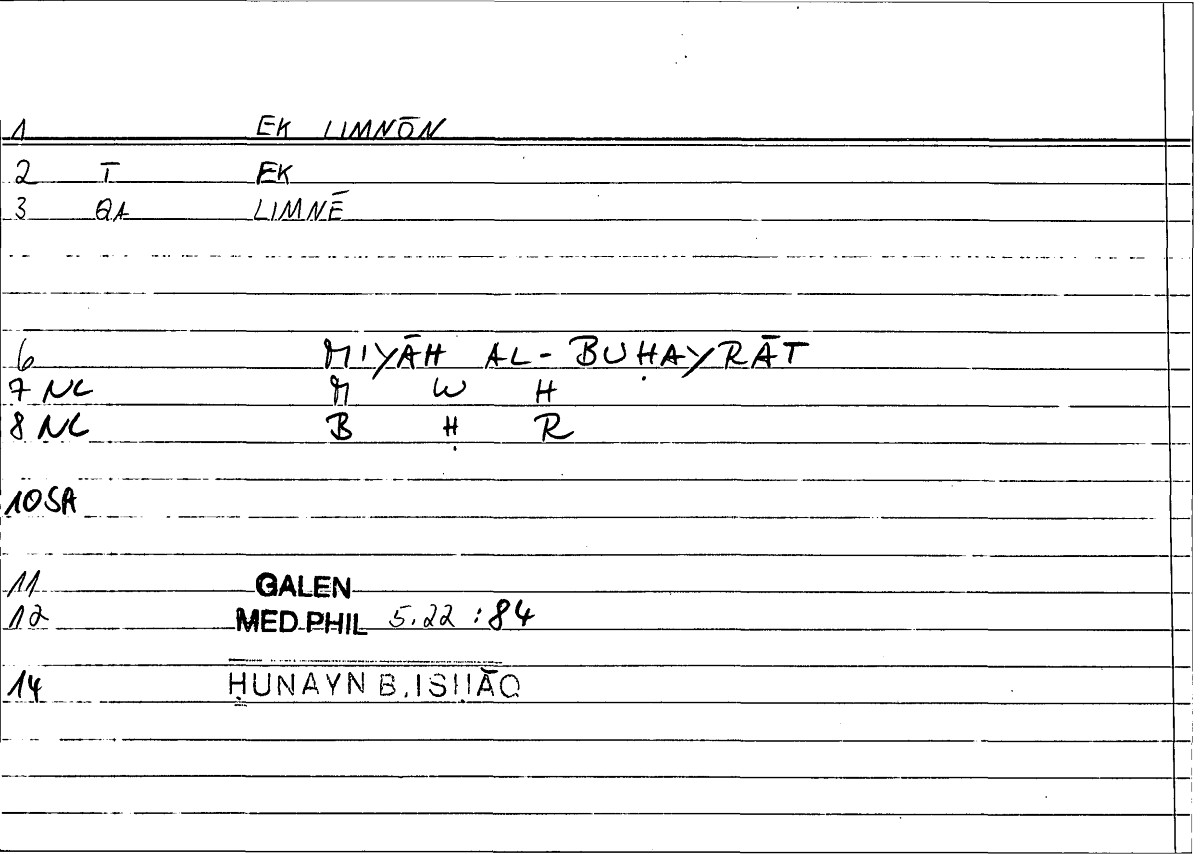 1 EK LIMNŌN
2 T EK
3 QA LIMNĒ
6 MIYĀH AL-BUḤAYRĀT
7 NC M W H
8 NC B Ḥ R
10 SA
11 GALEN
12 MED.PHIL 5.22 : 84
14 ḤUNAYN B. ISḤĀQ